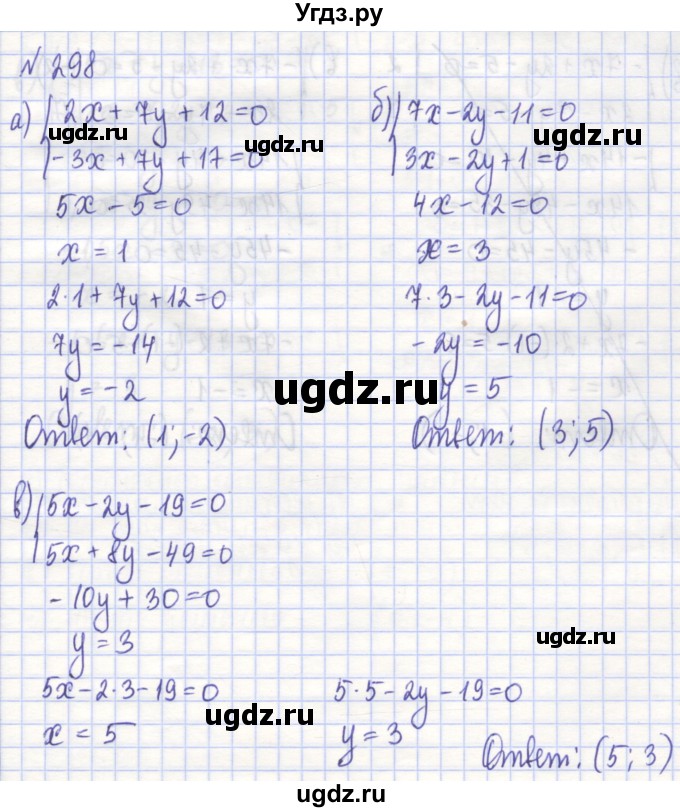 Угдз.ру
N 298
а) { 2x + 7y + 12 = 0
ugdz.ru
- 3x + 7y + 17 = 0
ugdz.ru
5x - 5 = 0
x = 1
2·1 + 7y + 12 = 0
7y = -14
y = -2
Ответ: (1; -2)
б) { 7x - 2y - 11 = 0
ugdz.ru
3x - 2y + 1 = 0
4x - 12 = 0
x = 3
7·3 - 2y - 11 = 0
- 2y = -10
ugdz.ru
y = 5
Ответ: (3; 5)
в) { 5x - 2y - 19 = 0
5x + 8y - 49 = 0
- 10y + 30 = 0
y = 3
ugdz.ru
5x - 2·3 - 19 = 0
x = 5
ugdz.ru
5·5 - 2y - 19 = 0
y = 3
Ответ: (5; 3)
ugdz.ru